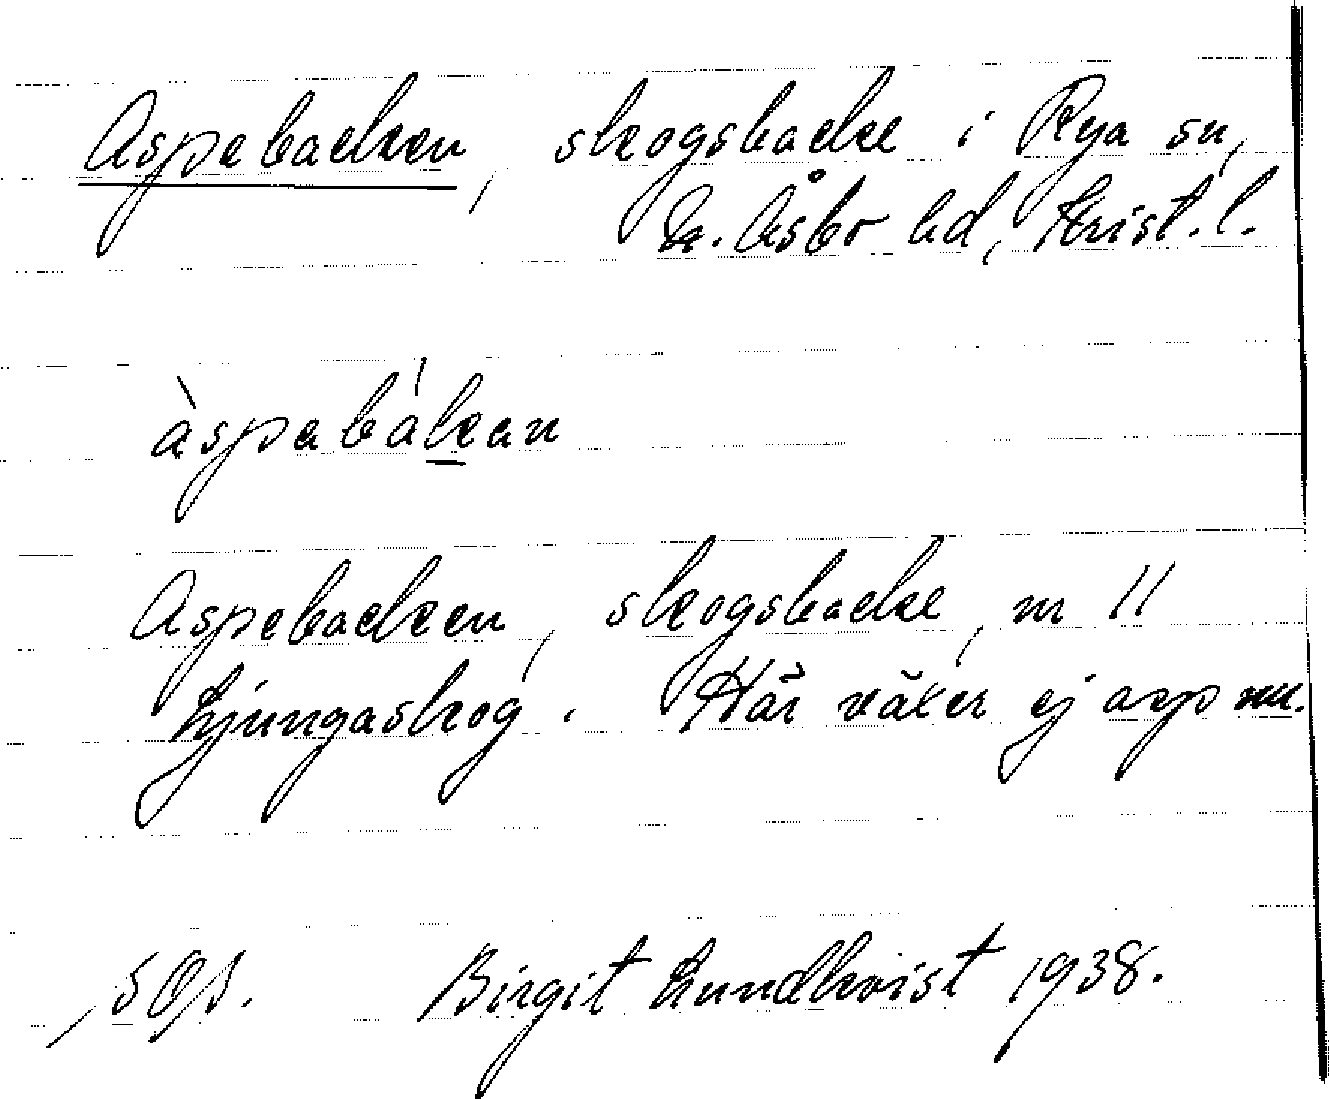 Aspebacken, skogsbacke i Rya sn,
N. Åsbo hd, Krist. l.
àspabákan
Aspebacken, skogsbacke, nr 11
Ljungaskog. Här växer ej asp nu.
Birgit Lundkvist 1938.